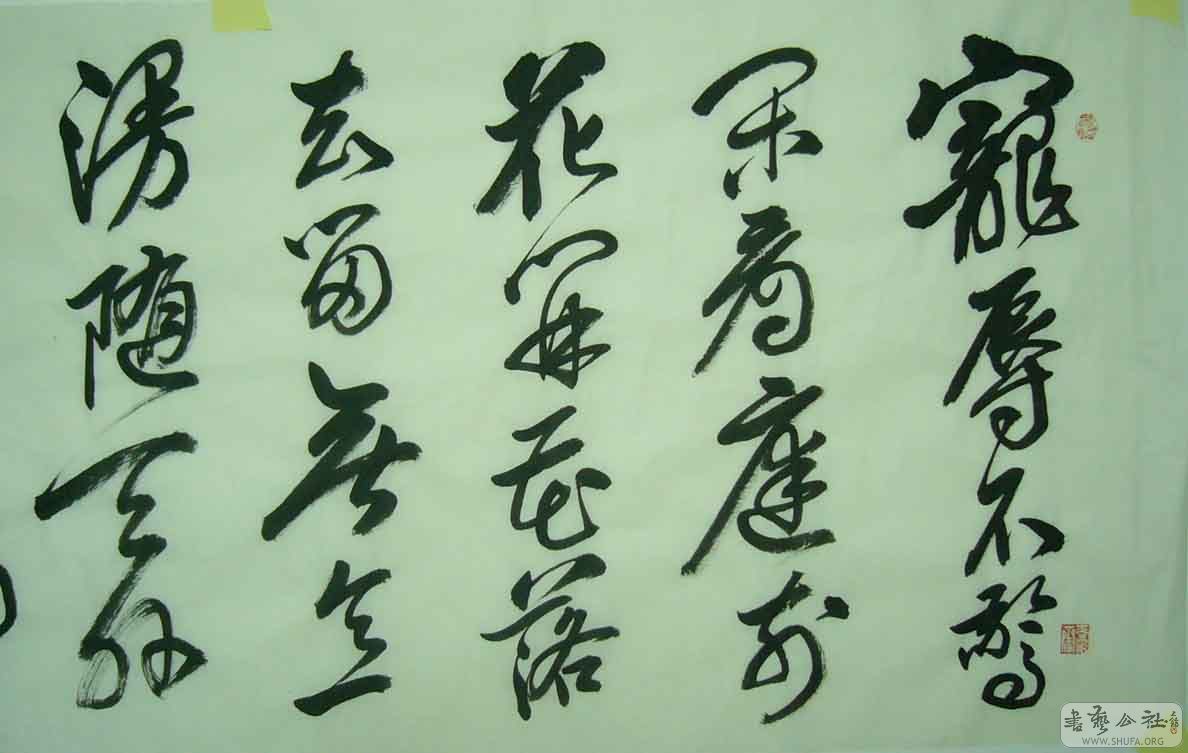 寵辱不驚
閑看庭前
花開花落
去留無意
漫随天外
書藝公社
WWW.SHUFA.ORG